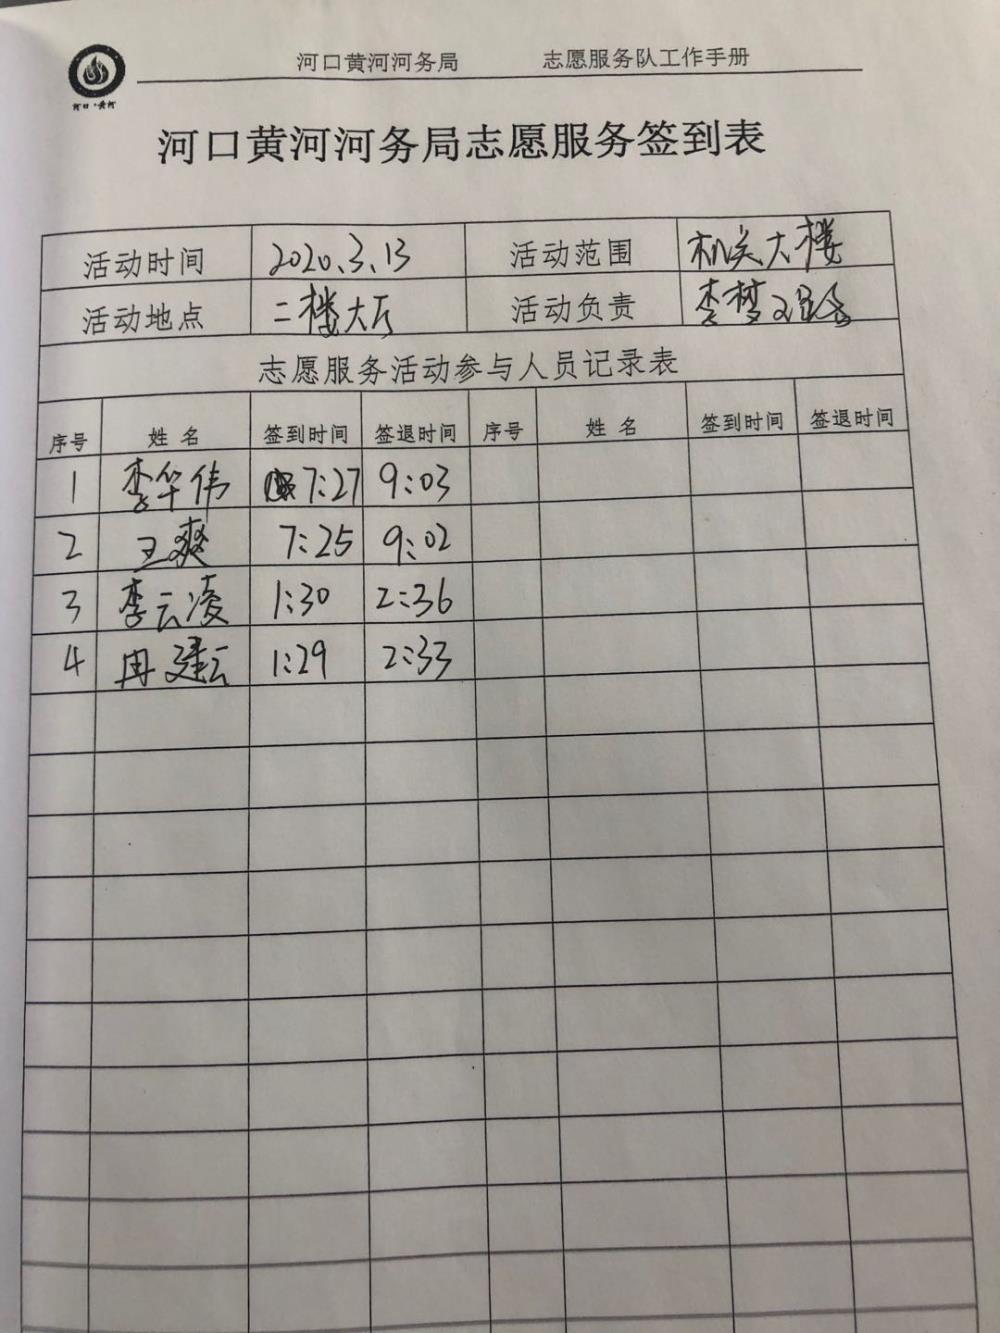 河口黄河河务局 志愿服务队工作手册
河口·黄河
河口黄河河务局志愿服务签到表
活动时间 2020.3.13 活动范围 机关大楼
活动地点 二楼大厅 活动负责 李梦
志愿服务活动参与人员记录表
序号 姓名 签到时间 签退时间 序号 姓名 签到时间 签退时间
1 李华伟 7:27 9:03
2 王爽 7:25 9:02
3 李云凌 1:30 2:36
4 冉建云 1:29 2:33